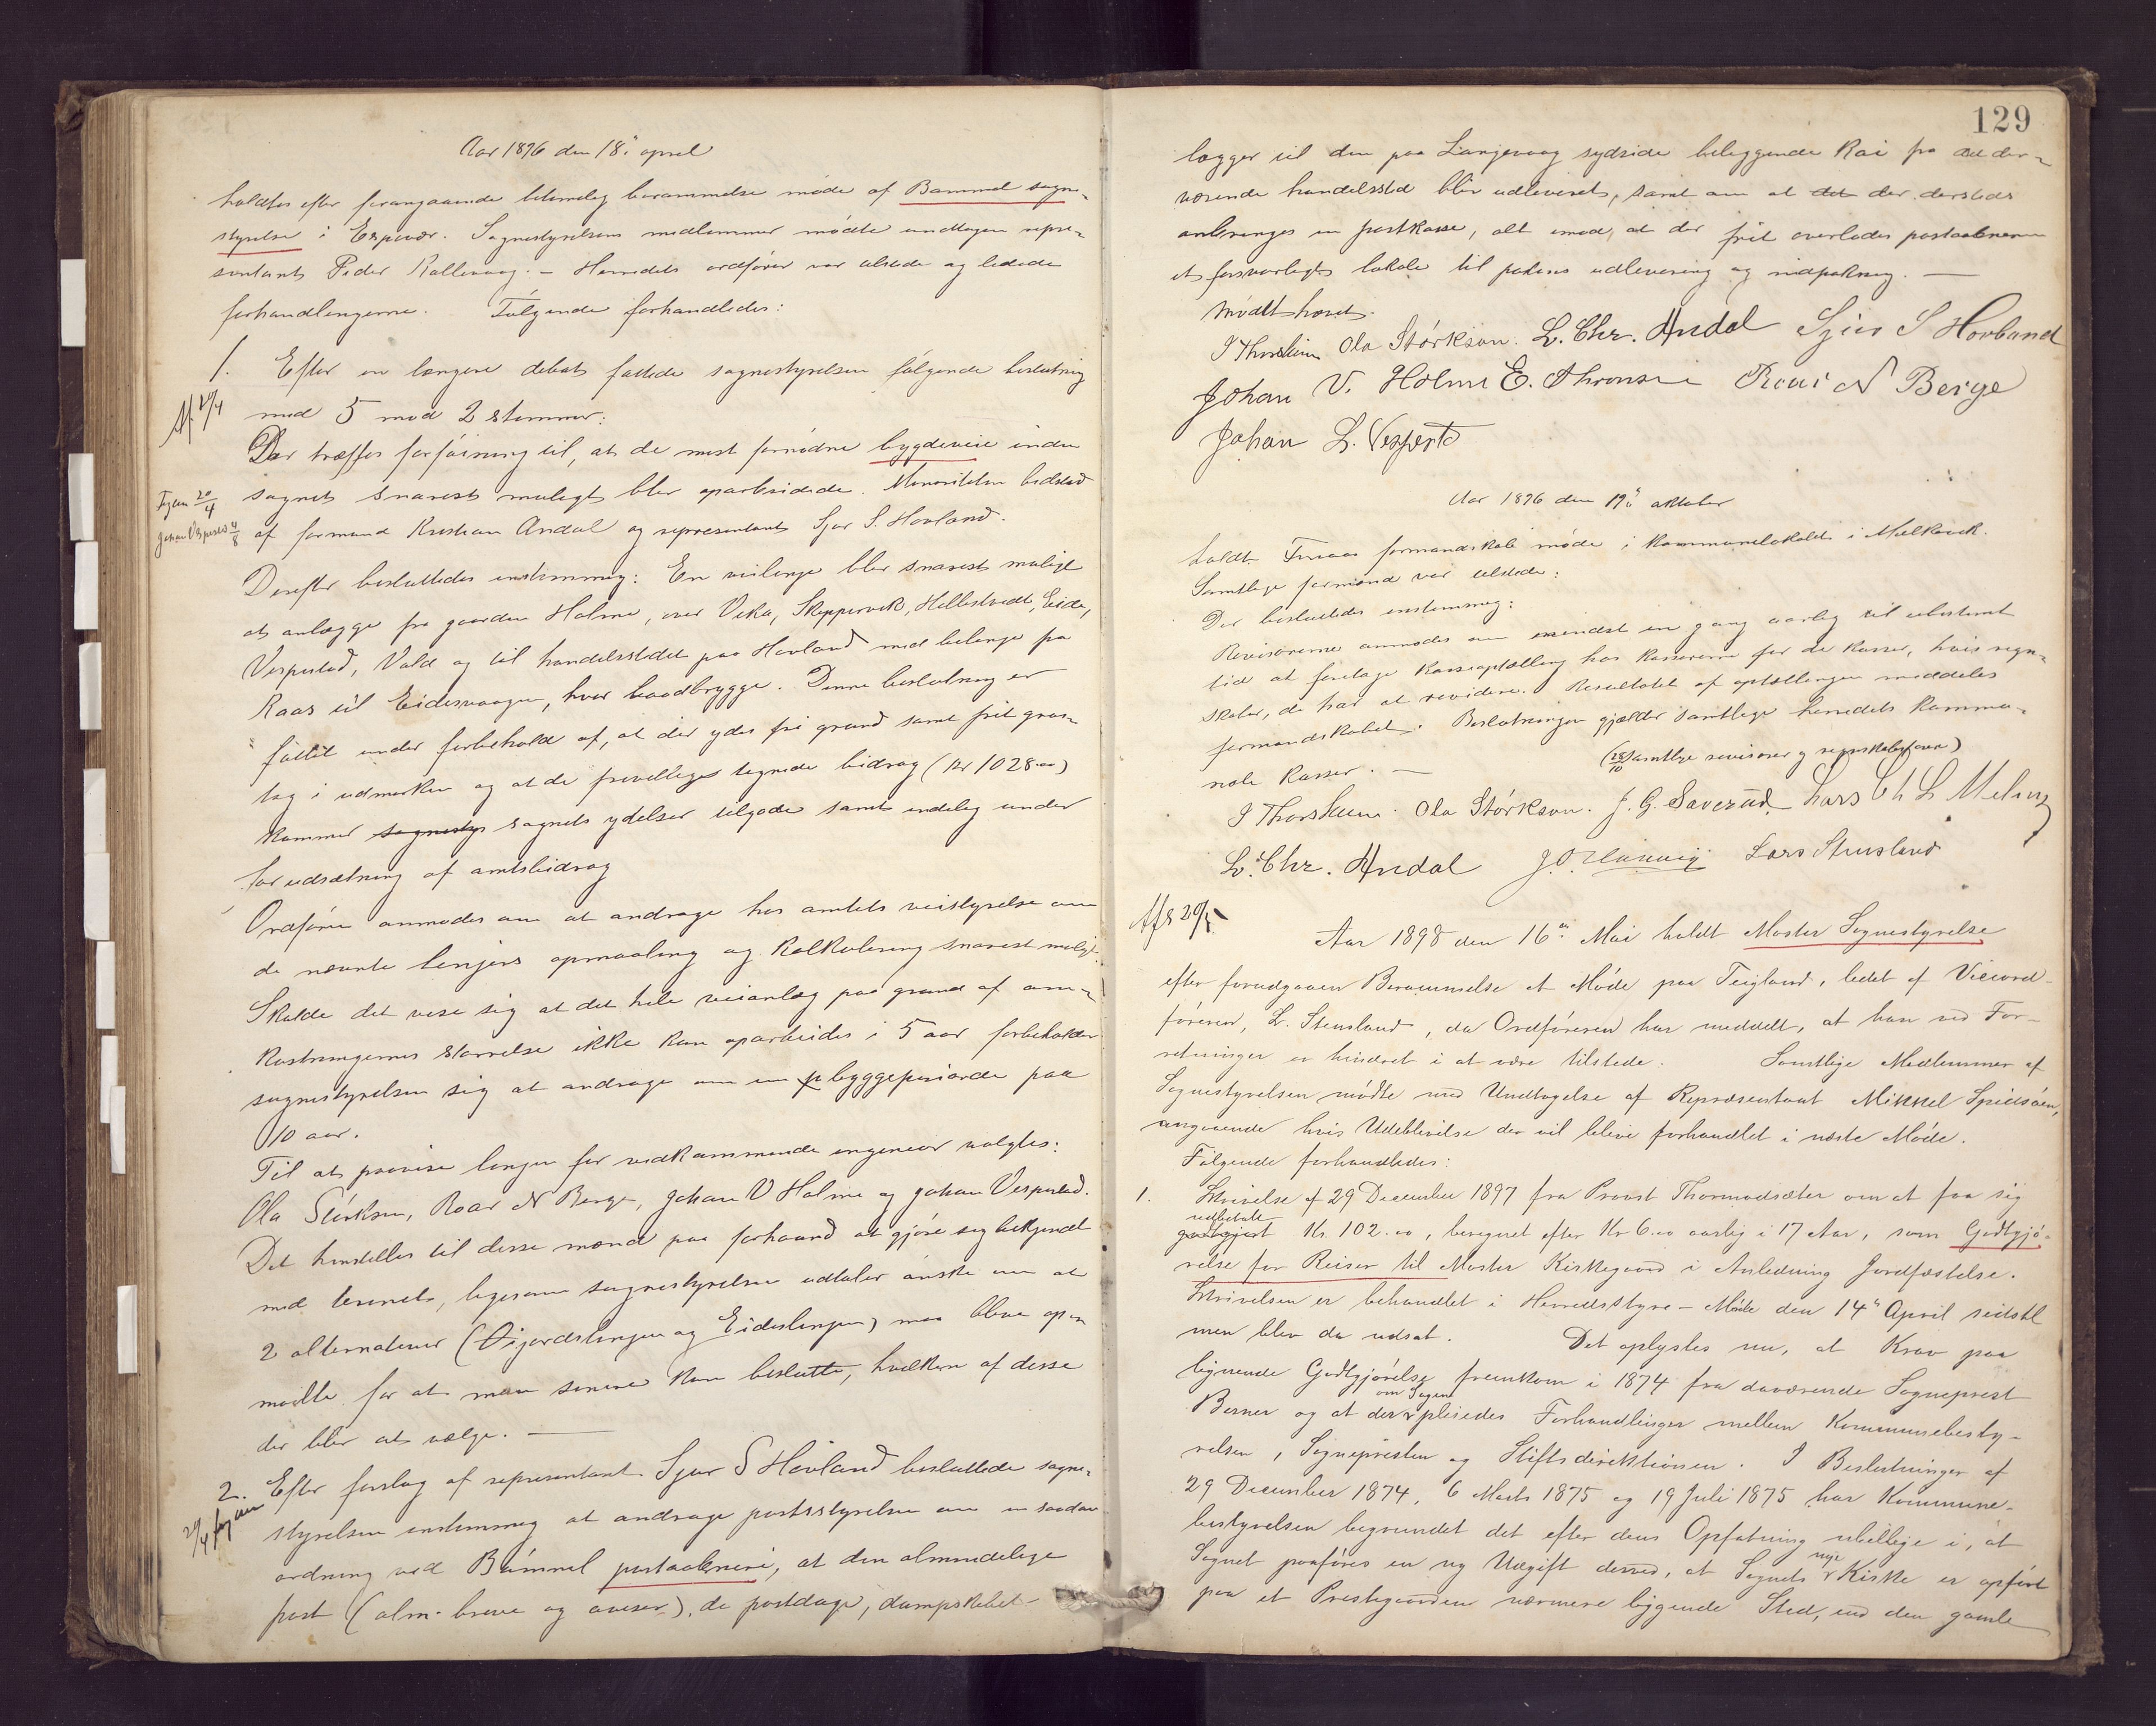 Aar 1896 den 18: april
holdtes efter forangaaende betimelig berammelse møde af Bømmel sogne-
styrelse i Espevær. Sognestyrelsens medlemmer mødte undtagen repre-
sentant Peder Kallevaag. – Herredets ordfører var tilstede og ledede
forhandlingerne. Følgende forhandledes:
1. Efter en længere debat fattede sognestyrelsen følgende beslutning
med 5 mod 2 stemmer:
Der træffes forføining til, at de mest fornødne bygdeveie inden
sognet snarest muligt blir oparbeidede. Minoriteten bestod
af formand Kristian Andal og representant Sjur S. Hovland.
Derefter besluttedes enstemmig: En veilinje blir snarest muligt
at anlægge fra gaarden Holme, over Vika, Skippervik, Hellestvedt, Eide,
Vespestad, Vold og til handelsstedet paa Hovland med bilinje fra
Raas til Eidesvaagen, hvor baadbrygge. Denne beslutning er
fattet under forbehold af, at der ydes fri grund samt frit grus-
tag i udmarken og at de frivilligt tegnede bidrag (kr 1028.00)
kommer sognesty sognets ydelser tilgode samt endelig under
forudsætning af amtsbidrag
Ordføren anmodes om at andrage hos amtets veistyrelse om
de nævnte linjers opmaaling og kalkulering snarest muligt.
Skulde det vise sig at det hele veianlæg paa grund af om-
kostningernes størrelse ikke kan oparbeides i 5 aar forbeholder
sognestyrelsen sig at andrage om en p byggeperiode paa
10 aar.
Til at påvise linjen for vedkommende ingeniør valgtes:
Ola Størksen, Roar N Berge, Johan V Holme og Johan Vespestad.
Det henstilles til disse mænd paa forhaand at gjøre sig bekjendt
med terrenet, ligesom sognestyrelsen udtaler ønske om at
2 alternativer (Øijordslinjen og Eideslinjen) maa blive op-
maalte for at man senere kan beslutte, hvilken af disse
der blir at vælge. —
2. Efter forslag af representant Sjur S Hovland besluttede sogne-
styrelsen enstemmig at andrage poststyrelsen om en saadan
ordning ved Bømmel postaabneri, at den almindelige
post (alm. breve og aviser), de postdage, dampskibet
Af 29/4
20/4
Johan Vespestad 4/8
29/4
129
lægger til den paa Langevaag sydside beliggende kai fra det der-
værende handelssted blir udleveret, samt om at det der dersteds
anbringes en postkasse, alt imod, at der frit overlades postaabneren
et forsvarligt lokale til postens udlevering og indpakning. —
Mødet hævet.
J Thorsheim Ola Størkson. L. Chr. Andal Sjur S Hovland
Johan V. Holme E. Thronsen Roar N Berge
Johan L. Vespestd
Aar 1896 den 19: oktober
holdt Finaas formandskab møde i kommunelokalet i Mælkevik.
Samtlige formænd var tilstede:
Der besluttedes enstemmig:
Revisorerne anmodes om mindst en gang aarlig til ubestemt
tid at foretage kasseoptælling hos kassererne for de kasser, hvis regn-
skaber, de har at revidere. Resultatet af optællingen meddeles
formandskabet. Beslutningen gjælder samtlige herredets kommu-
nale kasser. —
(28/10 Samtlige revisorer og regnskabsførere)
J Thorsheim. Ola Størkson. J. G. Saverud Lars Ch L Meling
L. Chr. Andal J. O. Lars Stensland
Afs 20/5
Aar 1898 den 16de Mai holdt Moster Sognestyrelse
efter forudgaaen Berammelse et Møde paa Teigland, ledet af Viceord-
føreren, L. Stensland, da Ordføreren har meddelt, at han ved For-
retninger er hindret i at være tilstede. Samtlige Medlemmer af
Sognestyrelsen mødte med Undtagelse af Repræsentant Mikkel Spidsøen,
angaaende hvis Udeblivelse der vil blive forhandlet i næste Møde.
Følgende forhandledes:
1. Skrivelse af 29 December 1897 fra Provst Thormodsæter om at faa sig
udbetalt
godtgjort Kr. 102.00, beregnet efter Kr 6.00 aarlig i 17 Aar, som Godtgjø-
relse for Reiser til Moster Kirkegaard i Anledning Jordfæstelse.
Skrivelsen er behandlet i Herredsstyre-Møde den 14de April sidstl
men blev da udsat. Det oplystes nu, at Krav paa
lignende Godtgjørelse fremkom i 1874 fra daværende Sogneprest
om Sagen
Berner og at der pleiedes Forhandlinger mellem Kommunebesty-
relsen, Sognepresten og Stiftsdirektionen. I Beslutninger af
29 December 1874, 6 Marts 1875 og 19 Juli 1875 har Kommune-
bestyrelsen begrundet det efter dens Opfatning ubillige i, at
Sognet paaføres en ny Udgift derved, at Sognets nye Kirke er opført
paa et Prestegaarden nærmere liggende Sted, end den gamle